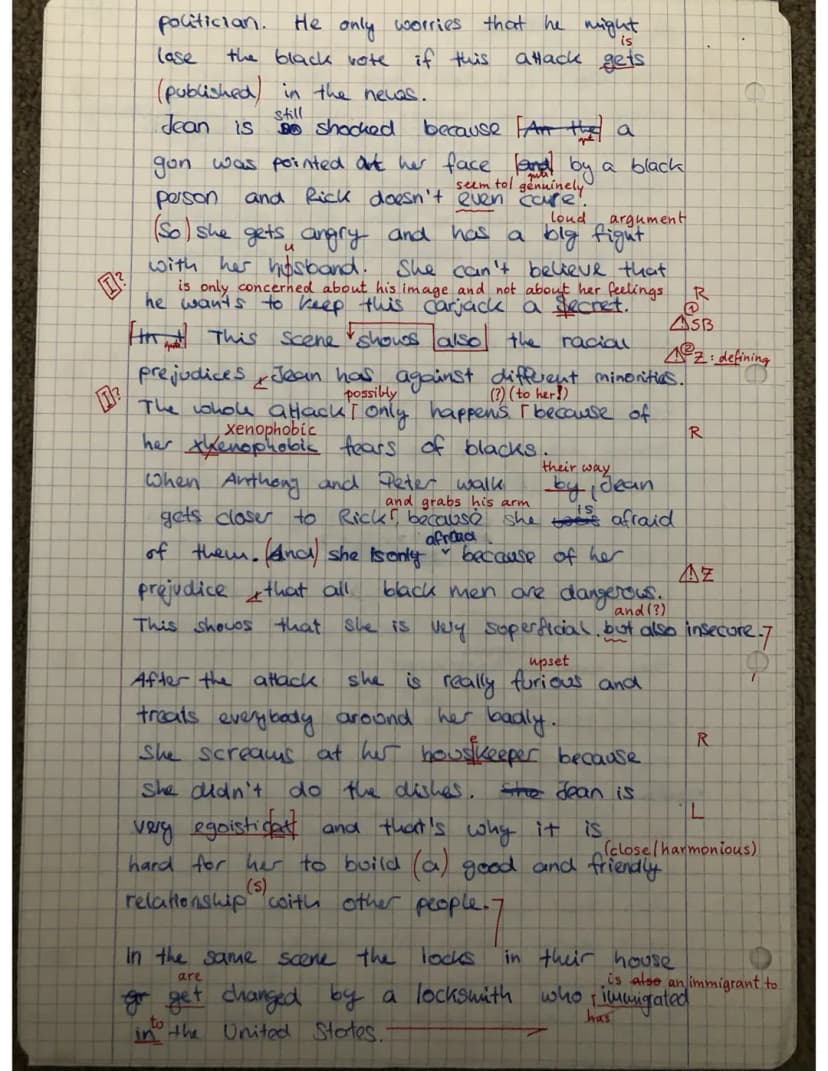 politician. He only worries that he might
is
lose the black vote if this attack gets
(published) in the news.
still
Jean is so shocked because [An the] a
gun was pointed at her face [and] by a black
seem to/genuinely
person and Rick doesn't even care.
loud argument
(So) she gets angry and has a big fight
u
with her hosband. She can't believe that
I? is only concerned about his image and not about her feelings R
he wants to keep this carjack a secret.
① SB
[In t] This scene shows also the racial
② Z: defining
prejudices Jean has against different minorities.
I? possibly (?) (to her!)
The whole attack only happens because of
xenophobic R
her xxenophobic fears of blacks.
their way
When Anthony and Peter walk by, Jean
and grabs his arm is
gets closer to Rick, because she was afraid
afraid
of them. (And) she is only because of her
Z
prejudice that all black men are dangerous.
and (?)
This shows that she is very superficial but also insecure.
upset
After the attack she is really furious and
treats everybody around her badly.
e R
She screams at her houskeeper because
she didn't do the dishes. She Jean is
L
very egoistic[al] and that's why it is
(close/harmonious)
hard for her to build (a) good and friendly
(s)
relationship with other people.
In the same scene the locks in their house
are is also an immigrant to
gr get changed by a locksmith who immigrated
to has
in the United States.